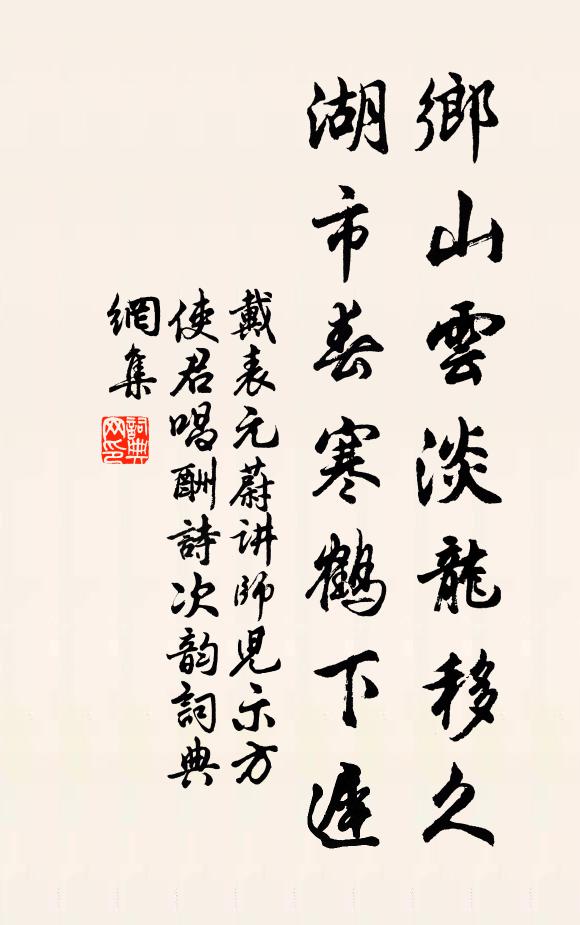 鄉山雲淡龍移久
湖市春寒鶴下遲
戴表元蔚讲師見示方
使君唱酬詩次韵詞典
網集
詞典
网印